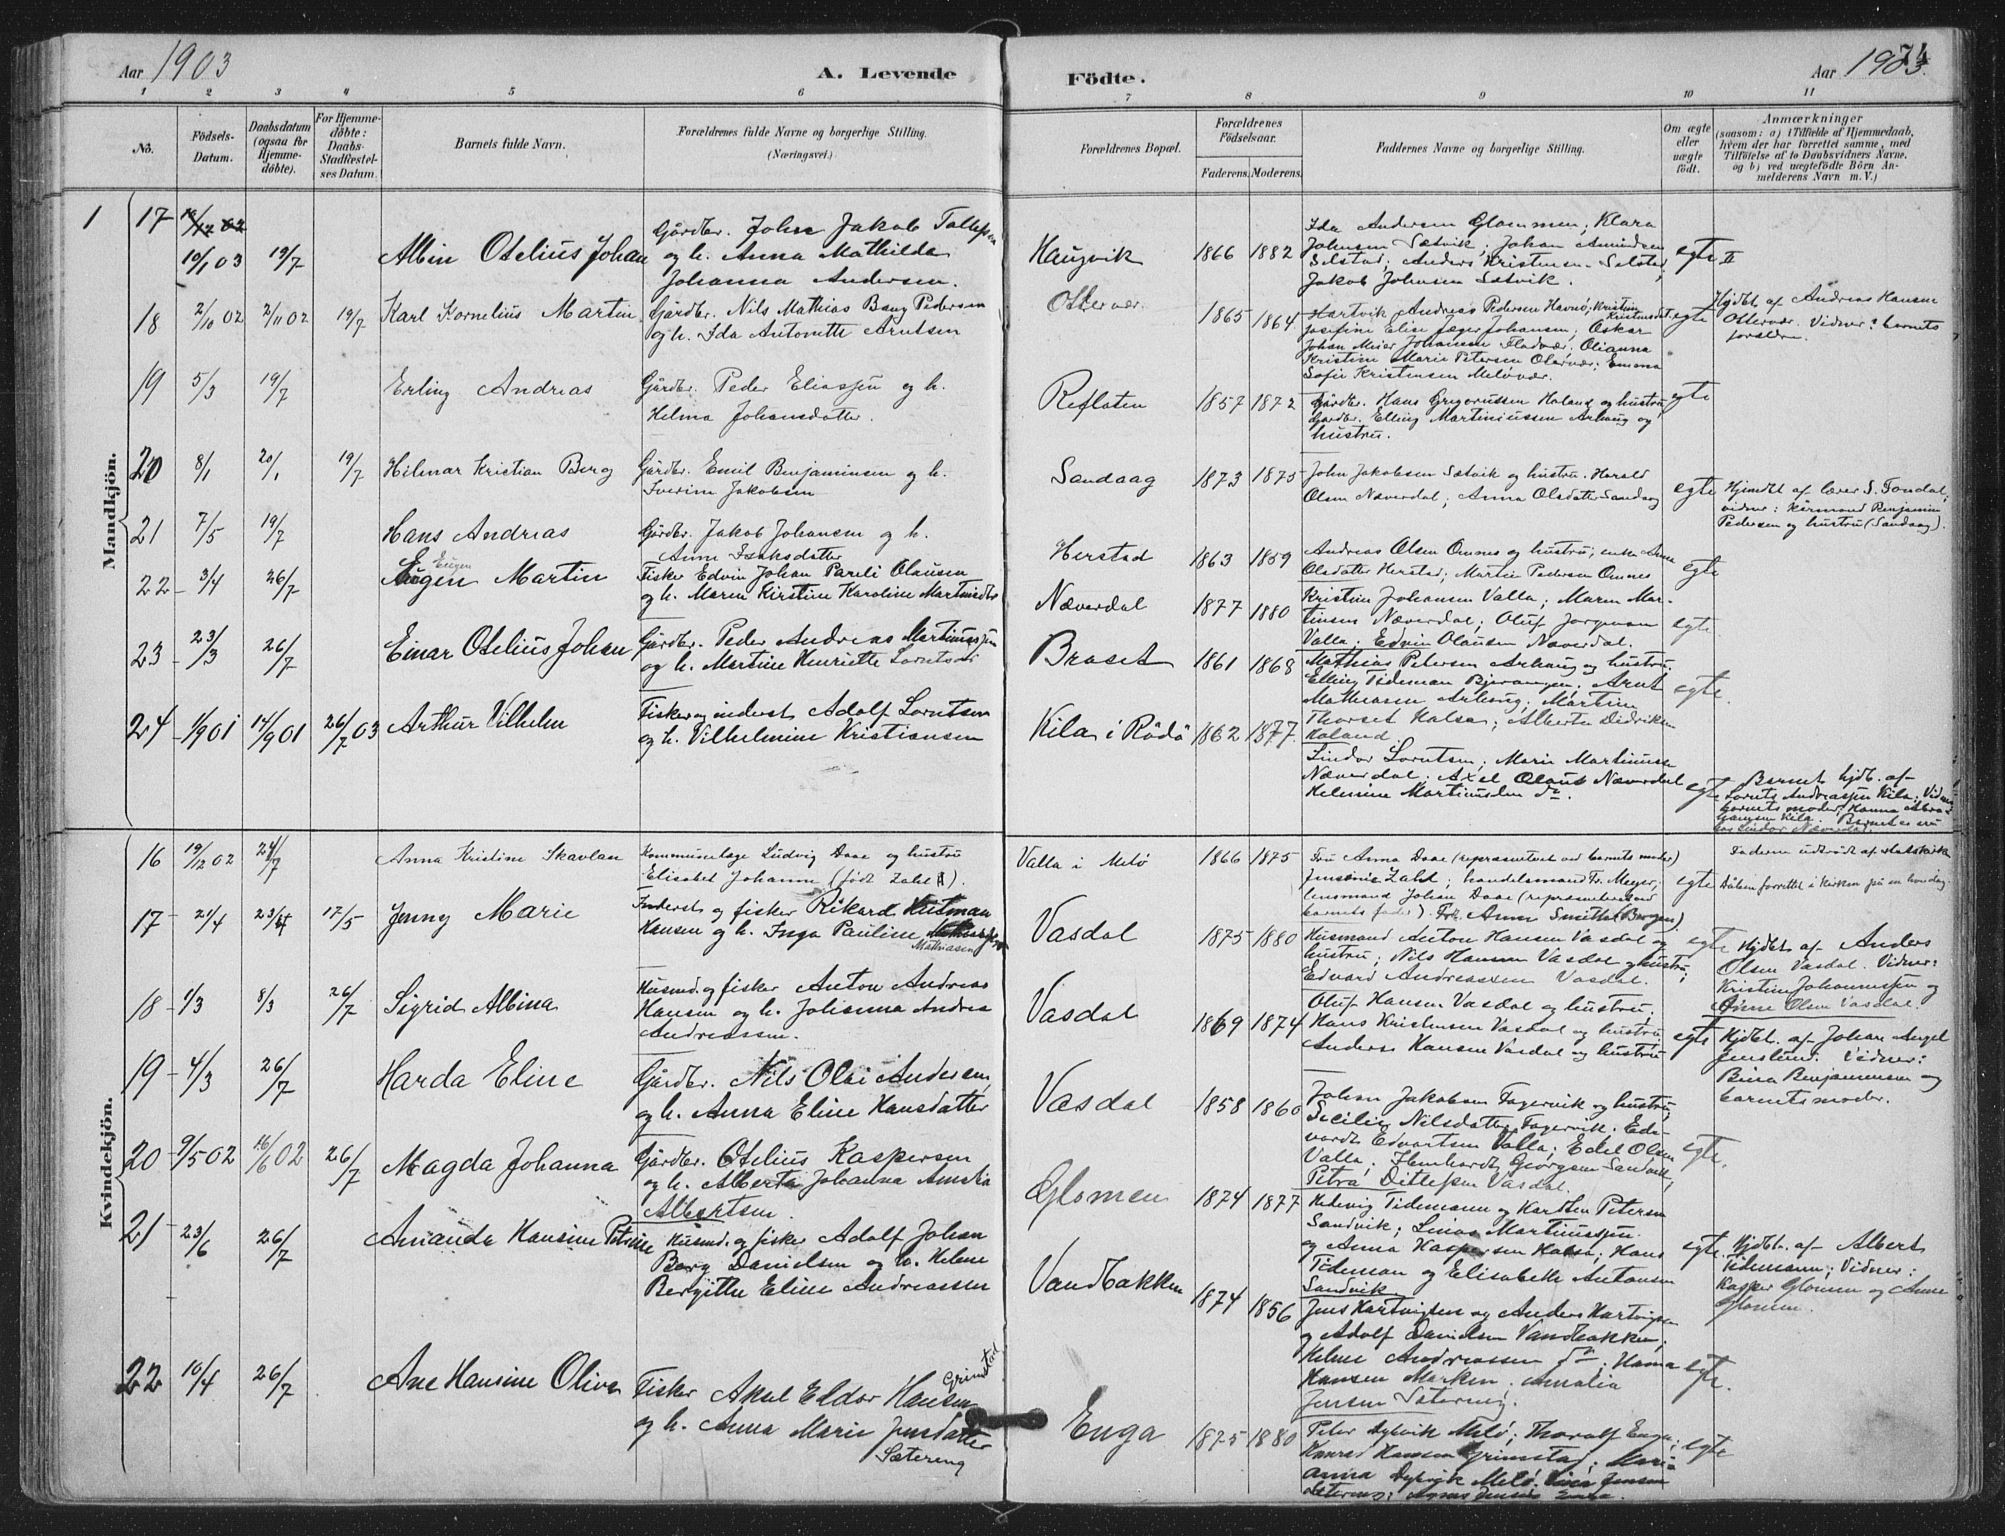 Aar 1903
A. Levende
Födte.
Aar 1903.
74
1 2 3 4 5 6 7 8 9 10 11
No.
Födsels-
Datum.
Daabsdatum
(ogsaa for
Hjemme-
döbte).
For Hjemme-
döbte:
Daabs-
Stadfæstel-
ses Datum.
Barnets fulde Navn.
Forældrenes fulde Navne og borgerlige Stilling.
(Næringsvei.)
Forældrenes Bopæl.
Forældrenes
Födselsaar.
Faderens. Moderens.
Faddernes Navne og borgerlige Stilling.
Om ægte
eller
uægte
födt.
Anmærkninger
(saasom: a) i Tilfælde af Hjemmedaab,
hvem der har forrettet samme, med
Tilföielse af to Daabsvidners Navne,
og b) ved uægtefödte Börn An-
melderens Navn m. V.)
Mandkjön.
1
17
19/1 03 19/7 Albin Otelius Johan
Gårdbr. John Jakob Tollefsen
og h. Anna Mathilda
Johanna Andersen.
Haugvik 1866 1882
Ida Andersen Glommen; Klara
Johnsen Sætvik; Johan Amundsen
Selstad; Anders Kristensen Selstad;
Jakob Johnsen Sætvik.
egte II
18 2/10 02 2/11 02 19/7 Karl Kornelius Martin
Gårdbr. Nils Mathias Bang Pedersen
og h. Ida Antonette Arntsen
Ottervær 1865 1864
Hartvik Andreas Pedersen Havnö; Kristine Kristensdat.
Josefine Elise Jæger Johansen; Oskar
Johan Meier Johansen Flatvær; Olianna
Kristine Marie Petersen Otervær; Emma
Sofie Kristensen Melövær.
egte
Hjdbt. af Andreas Hansen
Ottervær. Vidner: barnets
forældre.
19 5/3 19/7 Erling Andreas
Gårdbr. Peder Eliassen og h.
Helma Johansdatter.
Refloten 1857 1872
Gårdbr. Hans Gregoriussen Haland og hustru
Gårdbr. Elling Martiniussen Arhaug og
hustru.
egte
20 8/1 20/1 19/7 Hilmar Kristian Berg
Gårdbr. Emil Benjaminsen og h.
Iverine Jakobsen
Sandaag 1873 1875
John Jakobsen Sætvik og hustru. Harald
Olsen Næverdal; Anna Olsdatter Sandaag
egte
Hjemdbt af lærer S. Tondal,
vidner: kirmand Benjamin
Pedersen og hustru (Sandaag).
21 7/5 19/7 Hans Andreas
Gårdbr. Jakob Johansen og h.
Anne Isaksdatter
Herstad 1863 1859
Andreas Olsen Omnes og hustru; enke Anne
Olsdatter Herstad; Martin Pedersen Omnes
egte
22 3/4 26/7 Eugen Martin
Eugen
Fisker Edvin Johan Pareli Olausen
og h. Maren Kirstine Karoline Martinsdtr.
Næverdal 1877 1880
Kristine Johansen Valla; Maren Mar-
tinsen Næverdal; Oluf Jorgensen
Valla; Edvin Olausen Næverdal.
egte
23 23/3 26/7 Einar Otelius Johan
Gårdbr. Peder Andreas Martinussen
og h. Martine Henriette Lorntsdtr
Braset 1861 1868
Mathias Petersen Arhaug og hustru.
Elling Tideman Bjerangen; Arnt
Mathiasen Arhaug; Martin
Thorset Halsa; Alberte Didriksen
Haland.
egte.
24 1/9 01 14/9 01 26/7 03 Arthur Vilhelm
Fisker og inderst Adolf Lorntsen
og h. Vilhelmine Kristiansen
Kila i Rödö 1862 1877.
Sindor Lorntsen; Marie Martinusen
Næverdal; Axel Olaus Næverdal
Helmine Martinusden do.
egte
Barnet hjdbt. af
Lornts Andreassen Kila; Vidner
barnets moder, Hanna Abra-
hamsen Kila. Barnet er nu
hos Sindor Næverdal
Kvindekjön.
16 19/12 02 24/7 Anna Kristine Skavlan
Kommunelæge Ludvig Daae og hustru
Elisabet Johanne (födt Zahl).
Valla i Melö 1866 1875
Fru Anna Daae (repræsenteret ved barnets moder)
Jensenie Zahl; handelsmand Fr. Meyer;
lensmand Johan Daae (repræsenteret ved
barnets fader). Frk Anna Smith (Bergen).
egte
Faderen udtrådt af statskirken
Dåben forrettet i kirken på en hverdag.
17 21/4 23/4 17/5 Jenny Marie
Inderst og fisker Rikard Hitman
Hansen og h. Inga Pauline
Mathiasen
Vasdal 1875 1880
Husmand Anton Hansen Vasdal og
hustru; Nils Hansen Vasdal og hustru;
Edvard Andreassen Vasdal.
egte
Hjdbt af Anders
Olsen Vasdal. Vidner:
Kristine Johannessen og
Anne Olsen Vasdal.
18 1/3 8/3 26/7 Sigrid Albina
Husmd. og fisker Anton Andreas
Hansen og h. Johanna Andrea
Andreassen.
Vasdal 1869 1874
Oluf Hansen Vasdal og hustru;
Hans Kristensen Vasdal og hustru;
Anders Hansen Vasdal og hustru
egte
Hjdbt. af Johan Angel
Jenslund. Vidner:
Bina Benjaminsen og
barnets moder.
19 4/3 26/7 Harda Eline
Gårdbr. Nils Olai Andersen,
og h. Anna Eline Hansdatter
Vasdal 1858 1860
Johan Jakobsen Fagervik og hustru,
Secilie Nilsdatter Fagervik; Ed-
vardt Edvartsen Valla; Edel Olsen
Valla; Georgsen Sandvik,
Petra Ditlefsen Vasdal.
egte.
20 9/5 02 16/6 02 26/7 Magda Johanna
Gårdbr. Otelius Kaspersen
og h. Alberta Johanna Amalia
Albertsen.
Glomen 1874 1877
Hedevig Tidemann og Karsten Petersen
Sandvik; Linas Martinussen
og Anna Kaspersen Halsa; Hans
Tideman og Elisabeth Antonsen
Sandvik
egte.
Hjdbt. af Albert
Tidemann; Vidner:
Kasper Glomen og Anne
Glomen.
21 23/6 26/7 Amanda Hansine Petrine
Husmd. og fisker Adolf Johan
Berg Danielsen og h. Helene
Bergitte Eline Andreassen
Vandbakken 1874 1856
Jens Hartvigsen og Anders Hartvigsen
og Adolf Danielsen Vandbakken;
Helene Andreassen do; Hanna
Hansen Marken; Amalia
Jensen Sætering.
egte.
22 10/4 26/7 Ane Hansine Oliva
Fisker Aksel Eldor Hansen Grimstad
og h. Anna Marie Jensdatter
Sætereng
Enga 1875 1880
Peter Dybvik Melö; Thoralf Enga;
Konrad Hansen Grimstad; Maria
Anna Dybvik Melö; Jensen
Sætereng; Jensen Enga.
egte